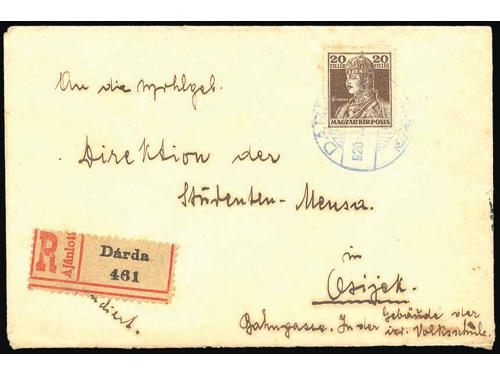 20 20
FILLÉR FILLÉR
MAGYAR KIR. POSTA
DÁR
920
An die
Direktion der
Studenten-Mensa.
in
Osijek.
Bahngasse. In der Gebäude der
isr. Volksschule.
R
Ajánlott
Dárda
461